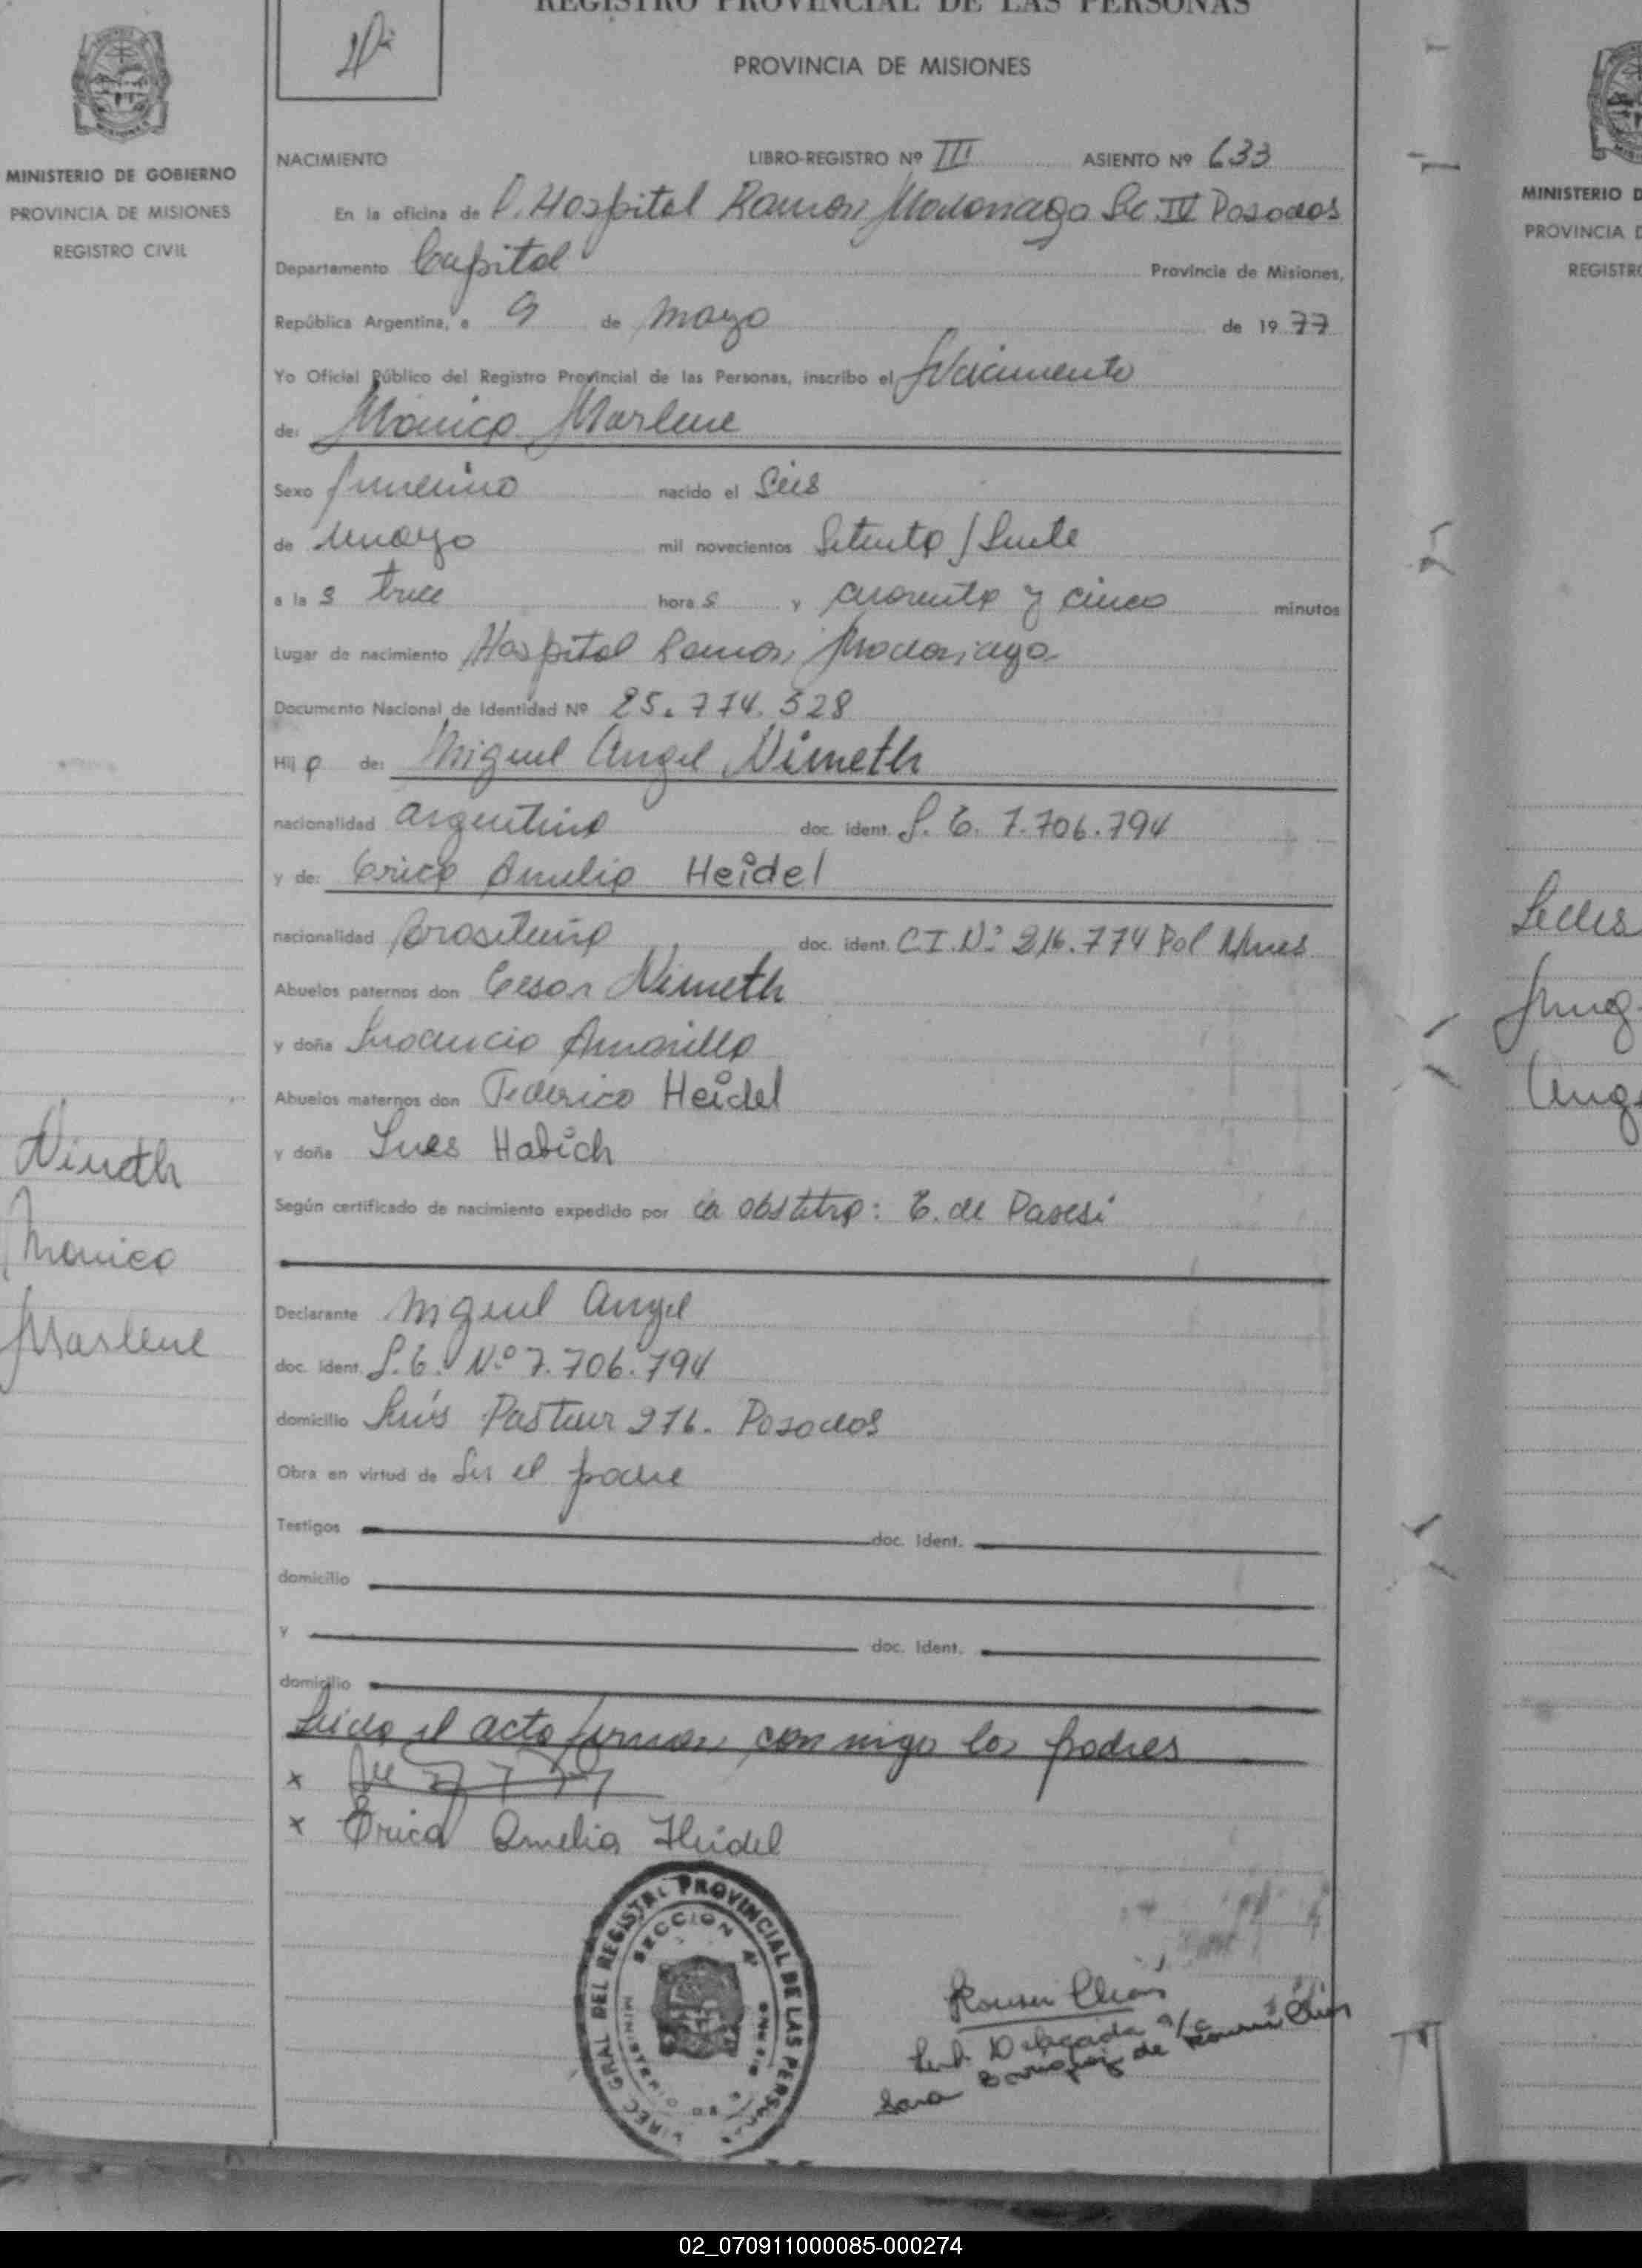 REGISTRO PROVINCIAL DE LAS PERSONAS
PROVINCIA DE MISIONES
MINISTERIO DE GOBIERNO
PROVINCIA DE MISIONES
REGISTRO CIVIL
NACIMIENTO LIBRO-REGISTRO Nº III ASIENTO Nº 633
En la oficina de P. Hospital Ramon Madariaga Sc IV Posadas
Departamento Capital Provincia de Misiones,
República Argentina, a 9 de mayo de 1977
Yo Oficial Público del Registro Provincial de las Personas, inscribo el Nacimiento
de: Monica Marlene
Sexo femenino nacido el Seis
de mayo mil novecientos Setenta / Siete
a las trece horas y cuarenta y cinco minutos
Lugar de nacimiento Hospital Ramon Madariaga
Documento Nacional de Identidad Nº 25.774.328
Hija de: Miguel Angel Nimeth
nacionalidad argentina doc. ident. L. E. 7.706.794
y de: Erica Amelia Heidel
nacionalidad Brasileña doc. ident. C.I.Nº 216.774 Pol Mnes
Abuelos paternos don Cesar Nimeth
y doña Amarilla
Abuelos maternos don Federico Heidel
y doña Ines Habich
Según certificado de nacimiento expedido por la obstetra: E. de
Declarante Miguel Angel
doc. ident. L.E. Nº 7.706.794
domicilio Luis Pasteur 276. Posadas
Obra en virtud de Ser el padre
Testigos doc. Ident.
domicilio
y doc. Ident.
domicilio
Leida el acta firman conmigo los padres
x
x Erica Amelia Heidel
DIREC GRAL DEL REGIST. PROVINCIAL DE LAS PERSONAS
SECCION 4ª
MINISTERIO DE
Sub. Delegada a/c
Sara de
Nimeth
Monica
Marlene
MINISTERIO D
PROVINCIA D
REGISTRO
Ang
02_070911000085-000274